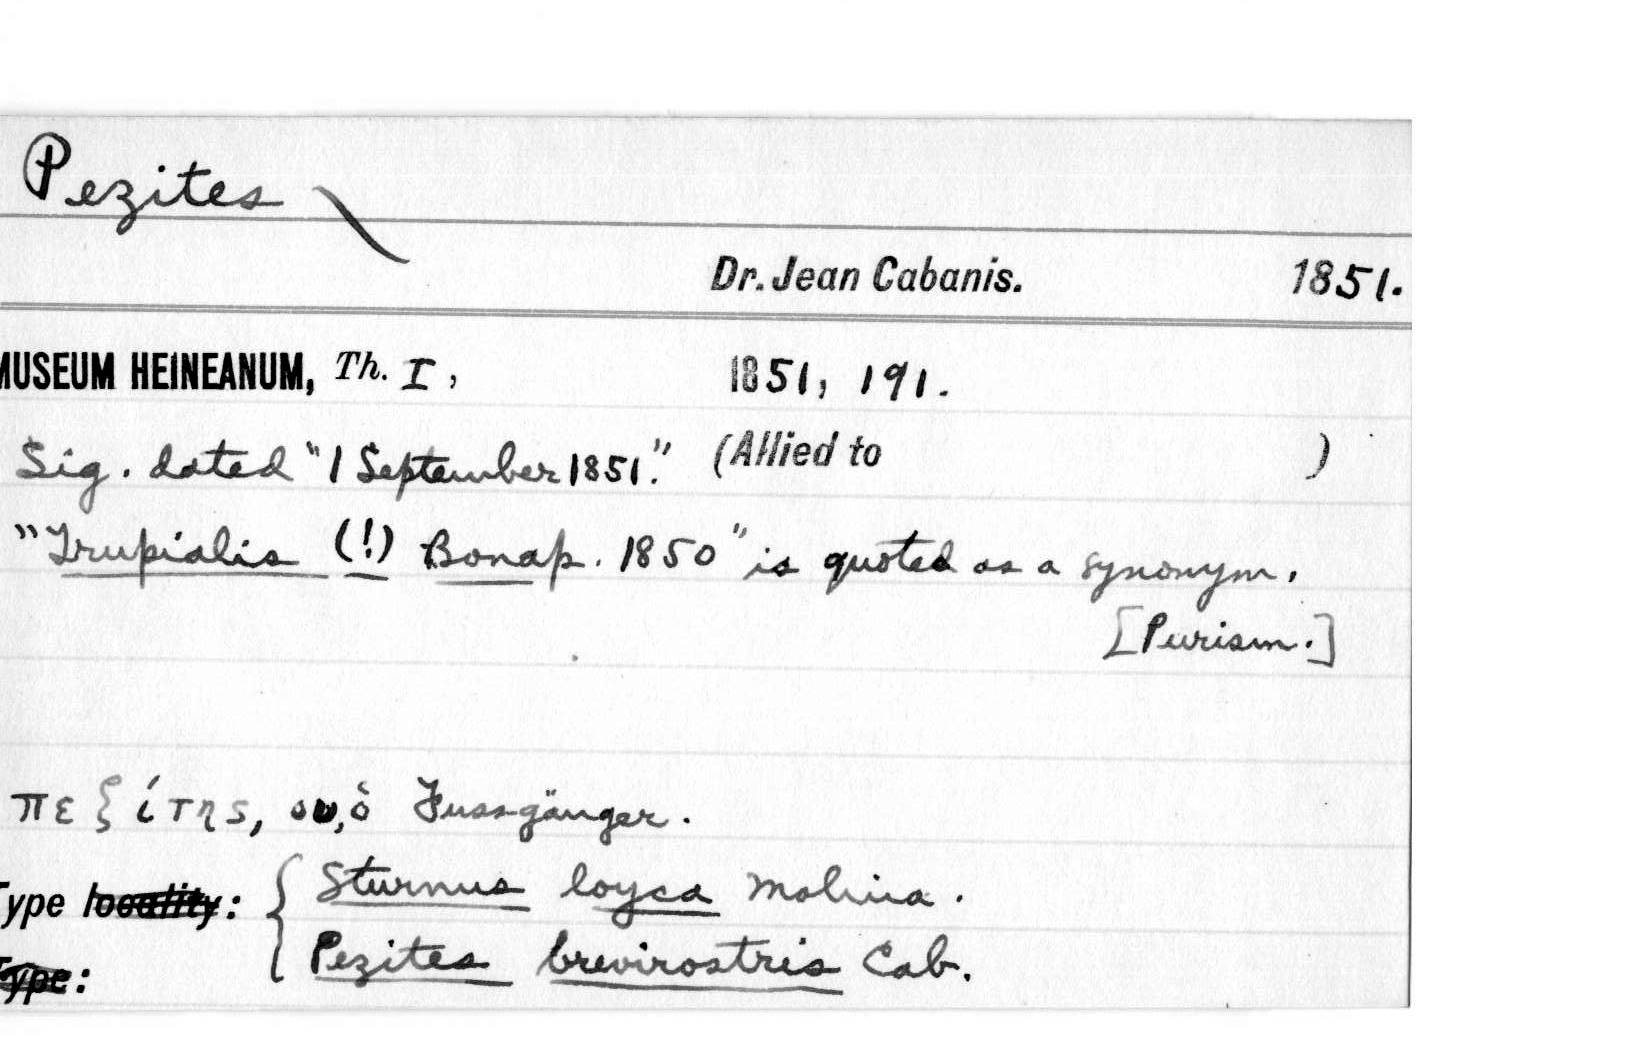 Pezites
Dr. Jean Cabanis. 1851.
MUSEUM HEINEANUM, Th. I, 1851, 191.
Sig. dated "1 September 1851." (Allied to )
"Trupialis (!) Bonap. 1850" is quoted as a synonym.
[Purism.]
πεζίτης, ου, ὁ Fussgänger.
Type locality: { Sturnus loyca Molina.
Type: Pezites brevirostris Cab.